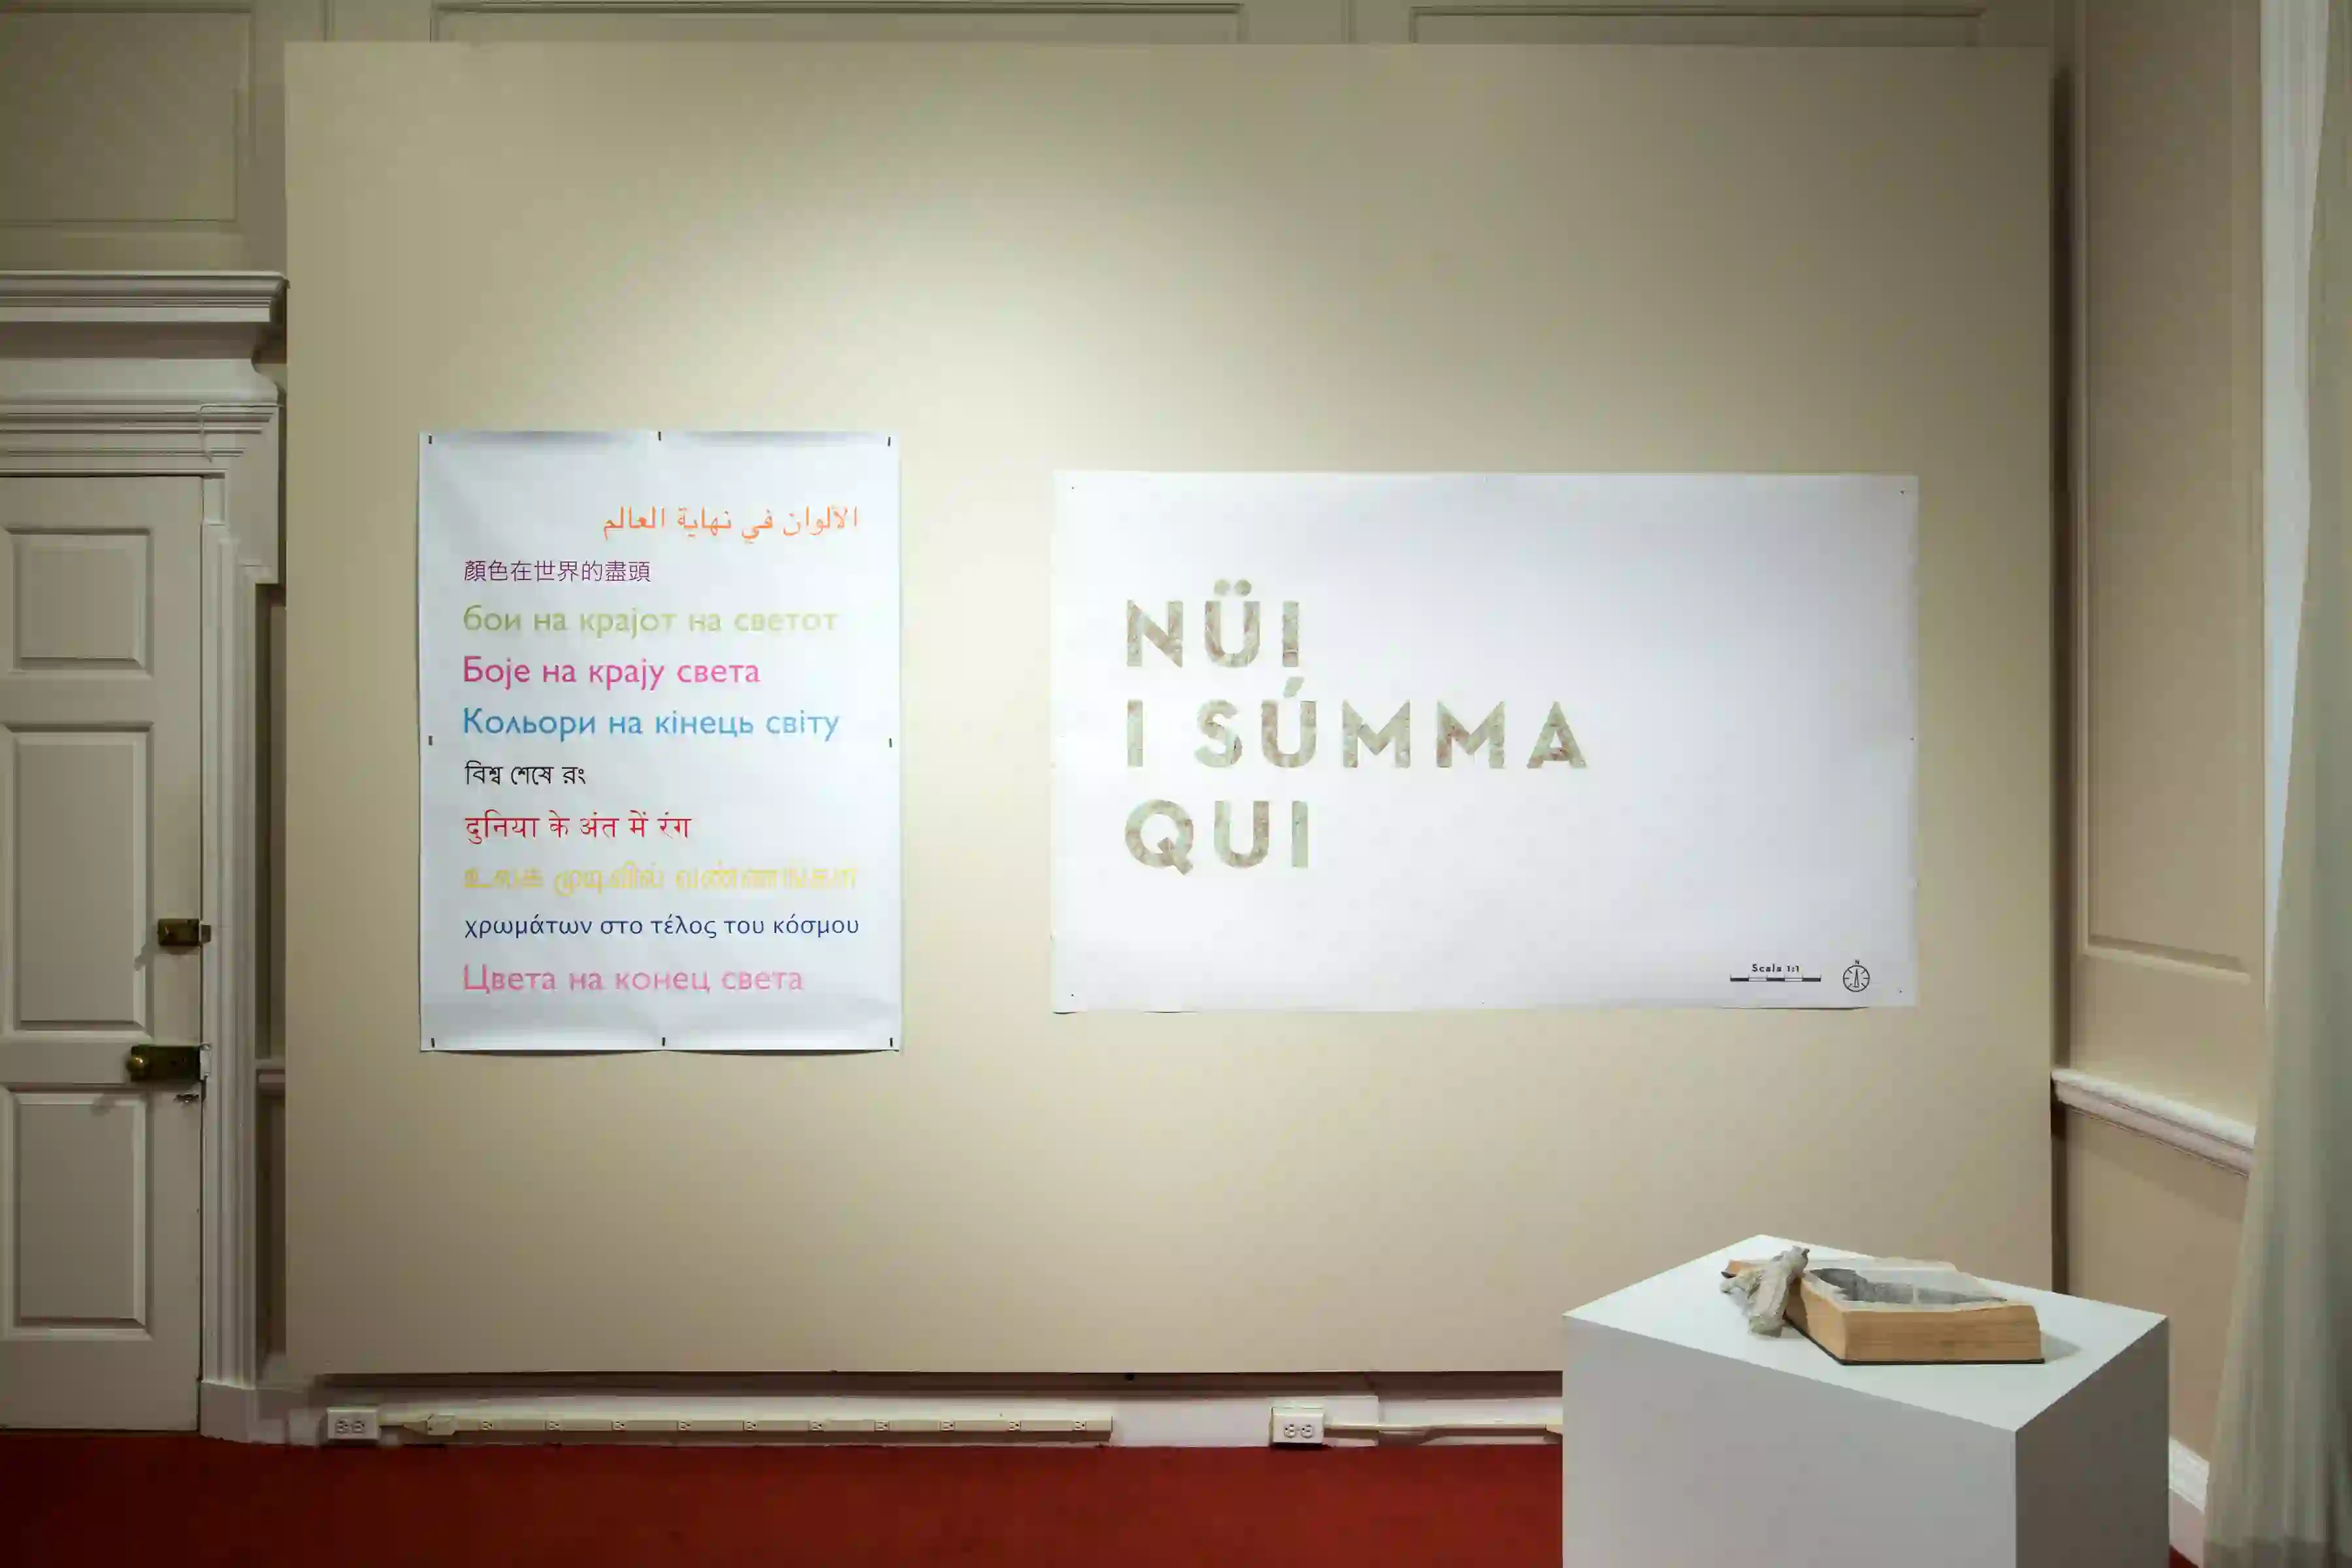 الألوان في نهاية العالم
顏色在世界的盡頭
бои на крајот на светот
Боје на крају света
Кольори на кінець світу
বিশ্ব শেষে রং
दुनिया के अंत में रंग
உலக முடிவில் வண்ணங்கள்
χρωμάτων στο τέλος του κόσμου
Цвета на конец света
NÜI
I SÚMMA
QUI
Scala 1:1
N